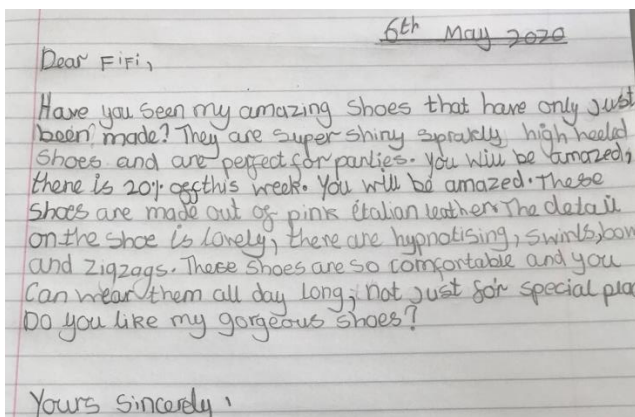 6th May 2020
Dear Fifi,
Have you seen my amazing shoes that have only just
been made? They are super shiny sprakly high heeled
shoes and are perfect for parties. you will be amazed,
there is 20% off this week. You will be amazed. These
shoes are made out of pink italian leather. The detail
on the shoe is lovely, there are hypnotising, swirls, bow
and zigzags. These shoes are so comfortable and you
Can wear them all day long, not just for special plac
Do you like my gorgeous shoes?
Yours Sincerely,